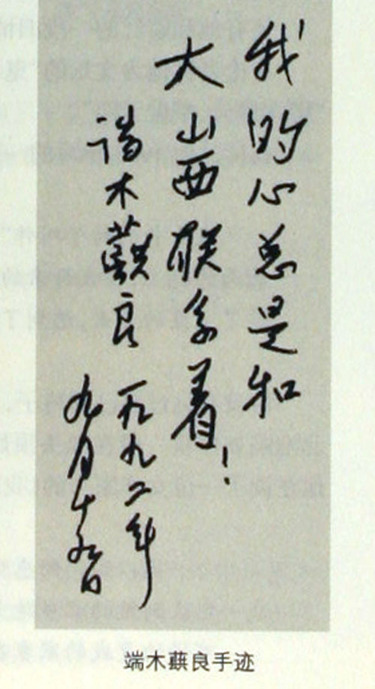 我的心总是和
大山西联系着！
端木蕻良
一九九二年
九月十九日
端木蕻良手迹